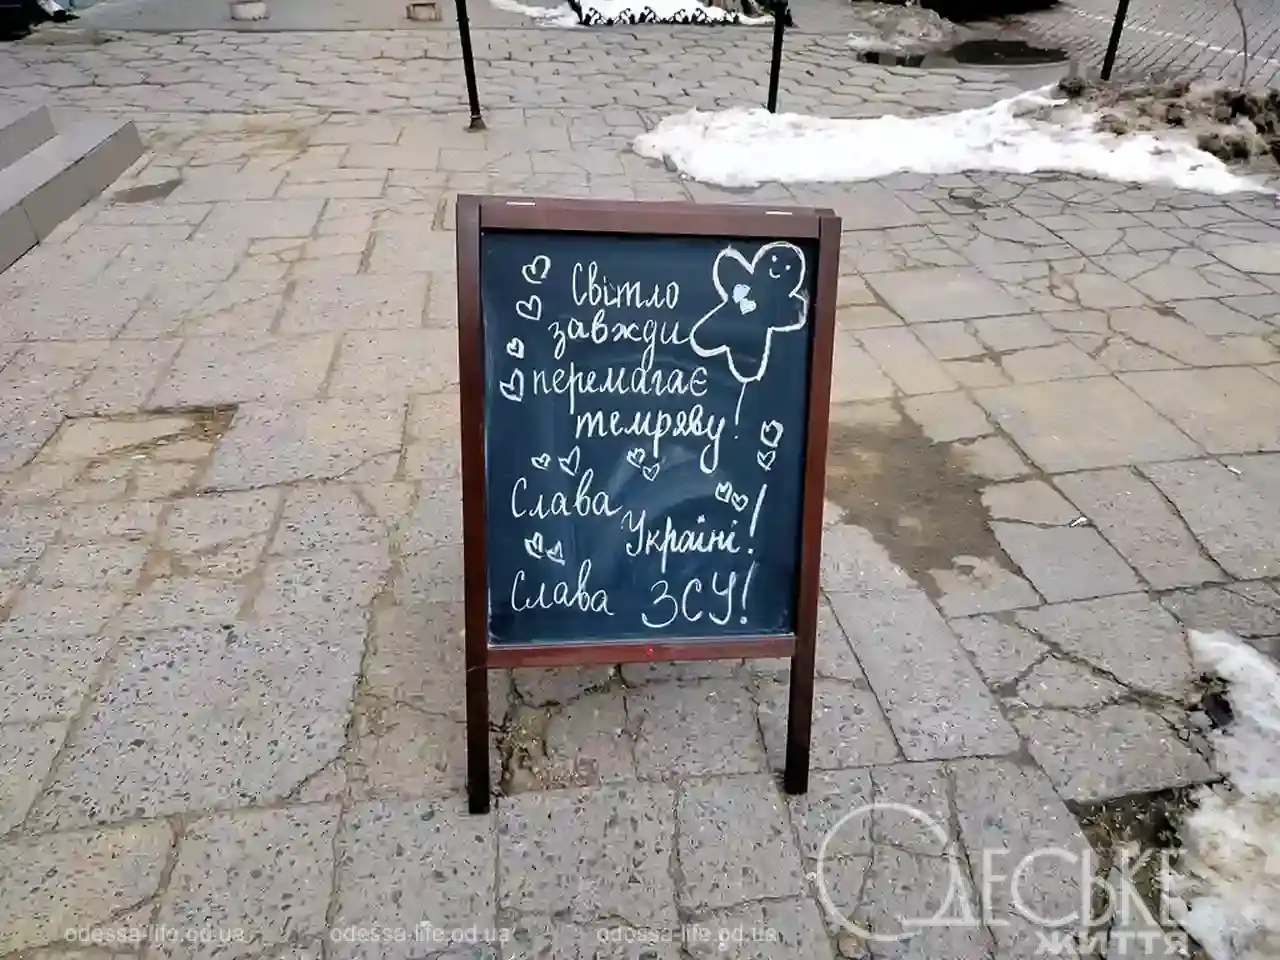 Світло
завжди
перемагає
темряву!
Слава
Україні!
Слава ЗСУ!
Одеське
життя
odessa-life.od.ua odessa-life.od.ua odessa-life.od.ua